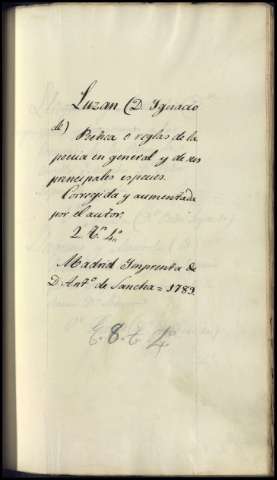 Luzan (D. Ignacio
de)
Poetica o reglas de la
poesia en general y de sus
principales especies.
Corregida y aumentada
por el autor.
2 ts. 4º
Madrid Imprenta de
D. Antº. de Sancha = 1789.
E. 8. t. 4º